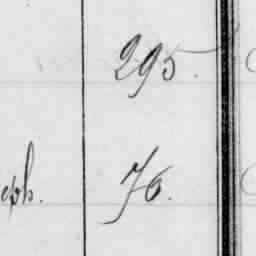 295.
eph. 76.